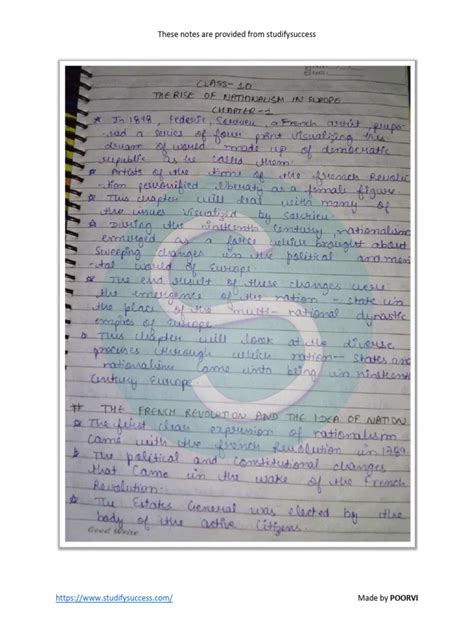 These notes are provided from studifysuccess
CLASS-10
THE RISE OF NATIONALISM IN EUROPE
CHAPTER-1
★ In 1848, Federic, Sorrieu, a French artist, prepa-
red a series of four print visualizing his
dream of world made up of democratic
republic as he called them.
★ Artists of the time of the french Revolu-
tion personified liberty as a female figure
★ This chapter will deal with many of
the issues visualized by Sorrieu.
★ During the nineteenth century, nationalism
emerged as a force which brought about
sweeping changes in the political and men-
tal world of Europe.
★ The end result of these changes were
the emergence of the nation-state in
the place of the multi-national dynastic
empires of Europe
★ This chapter will look at the diverse
process through which nation-states and
nationalism came into being in nineteenth
century Europe.
# THE FRENCH REVOLUTION AND THE IDEA OF NATION
★ The first clear expression of nationalism
came with the french Revolution in 1789
★ The political and constitutional changes
that came in the wake of the French
Revolution.
★ The Estates General was elected by the
body of the active citizens.
Good Write
https://www.studifysuccess.com/
Made by POORVI